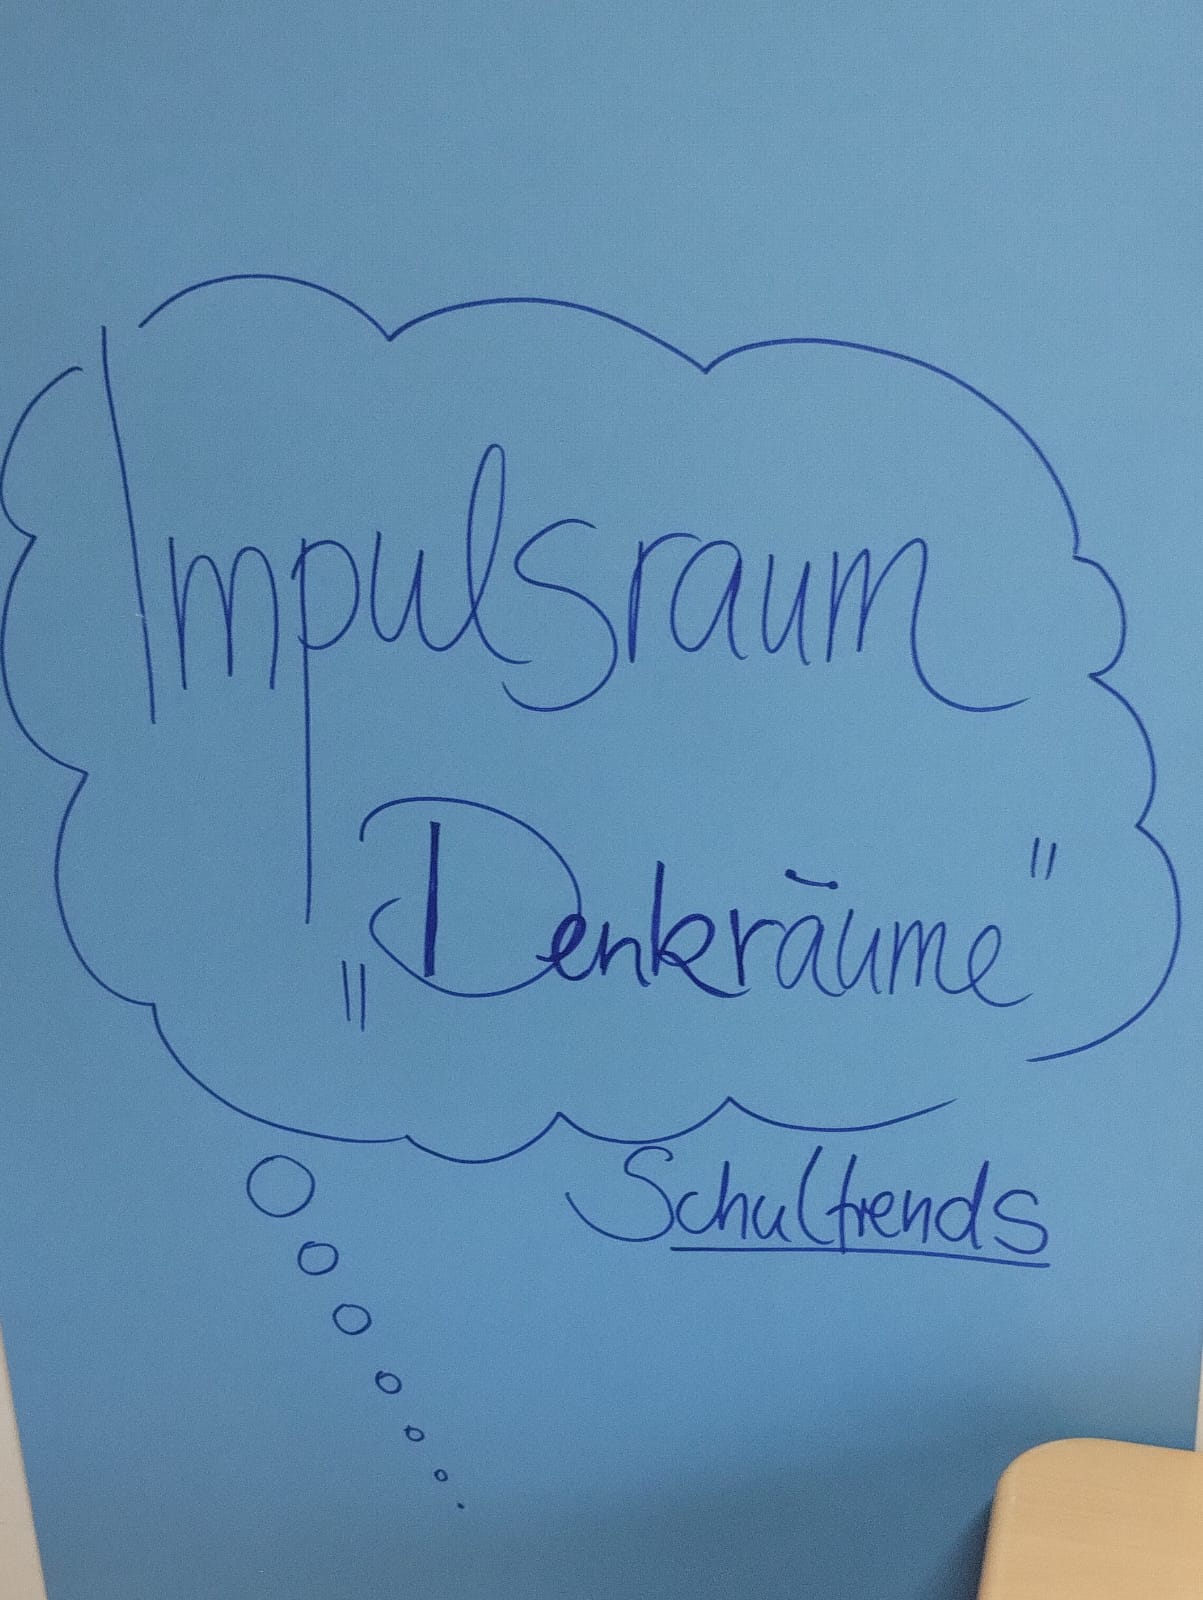 Impulsraum
„Denkräume"
Schultrends